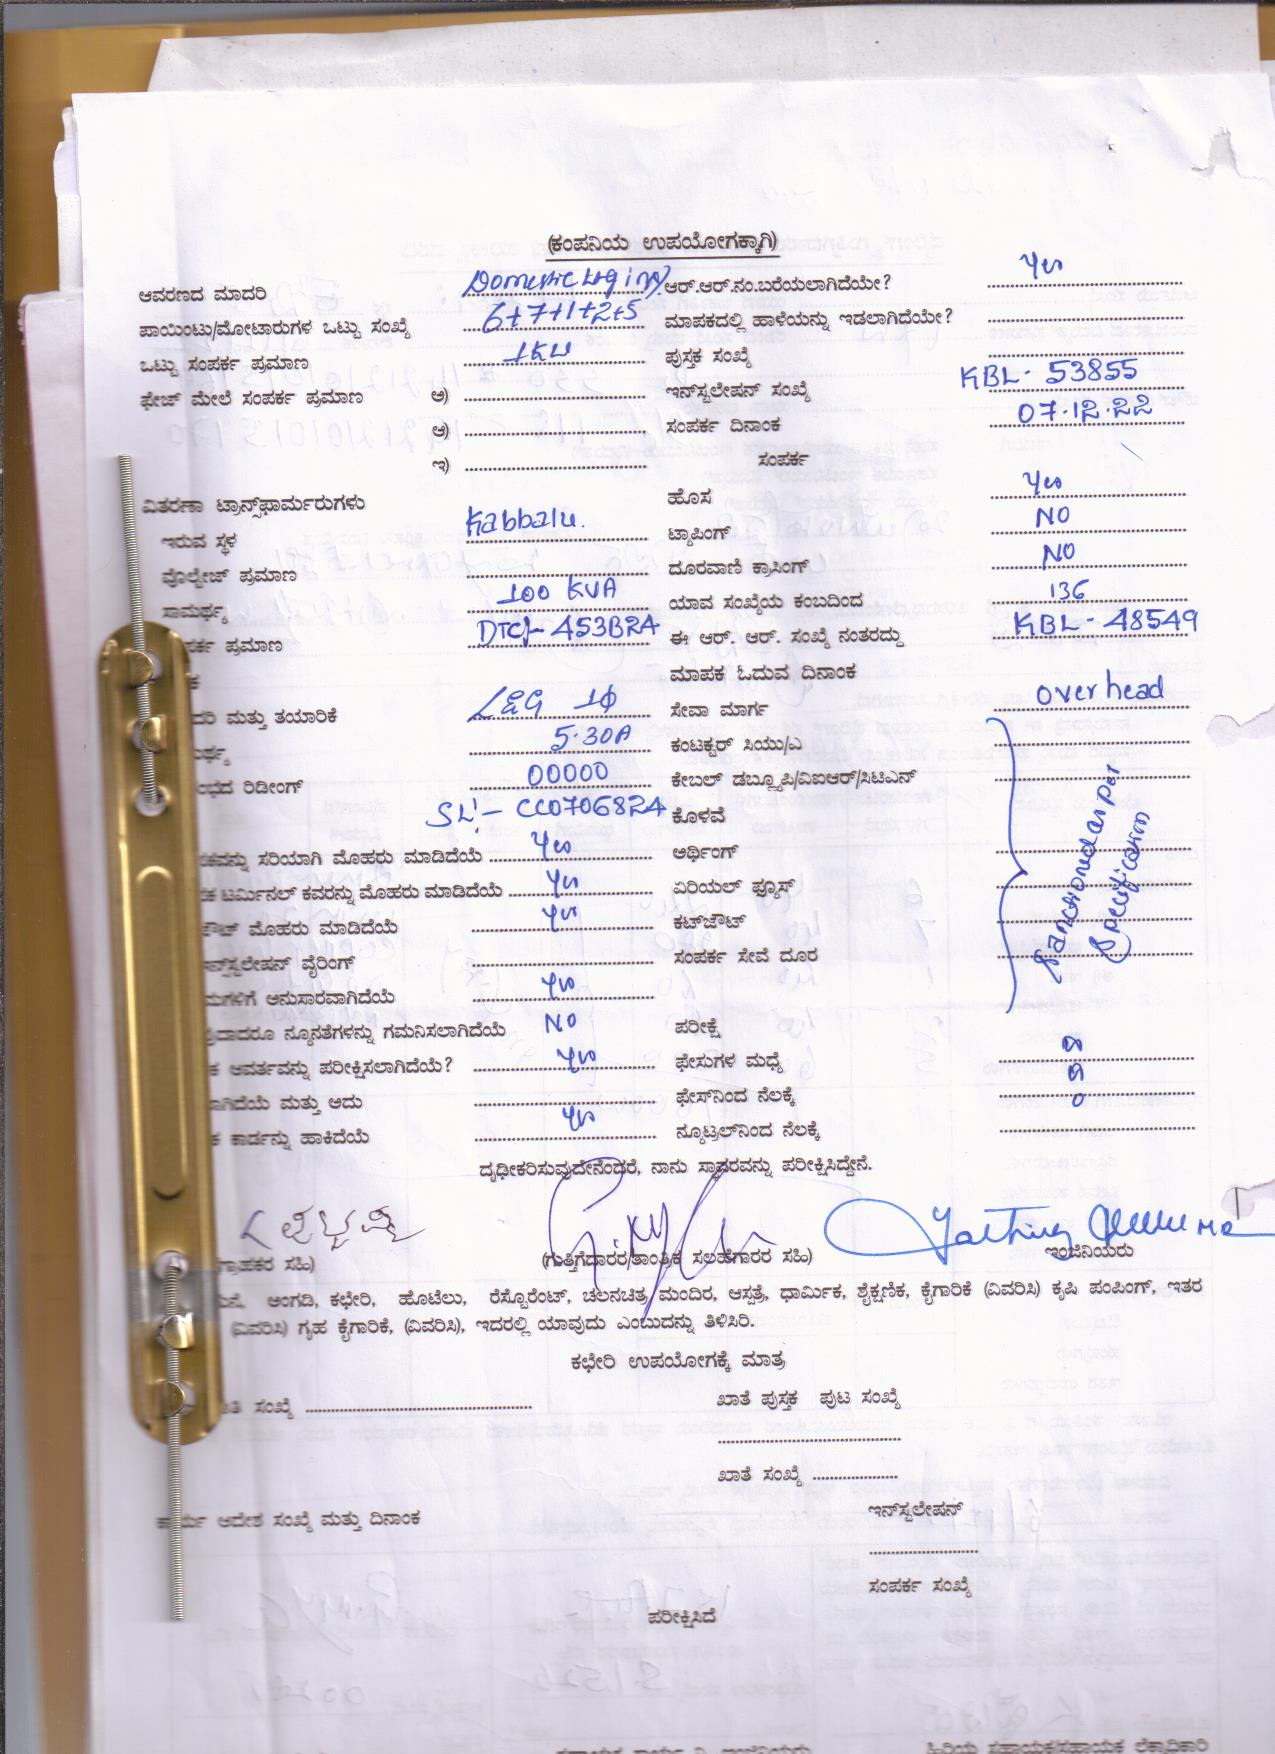 (ಕಂಪನಿಯ ಉಪಯೋಗಕ್ಕಾಗಿ)
ಆವರಣದ ಮಾದರಿ Domestic Loging ಆರ್.ಆರ್.ನಂ.ಬರೆಯಲಾಗಿದೆಯೇ? Yes
ಪಾಯಿಂಟು/ಮೋಟಾರುಗಳ ಒಟ್ಟು ಸಂಖ್ಯೆ 6+7+1+2+5 ಮಾಪಕದಲ್ಲಿ ಹಾಳೆಯನ್ನು ಇಡಲಾಗಿದೆಯೇ?
ಒಟ್ಟು ಸಂಪರ್ಕ ಪ್ರಮಾಣ 1KW ಪುಸ್ತಕ ಸಂಖ್ಯೆ
ಫೇಜ್ ಮೇಲೆ ಸಂಪರ್ಕ ಪ್ರಮಾಣ ಅ) ಇನ್‌ಸ್ಟಲೇಷನ್ ಸಂಖ್ಯೆ KBL - 53855
ಆ) ಸಂಪರ್ಕ ದಿನಾಂಕ 07.12.22
ಇ) ಸಂಪರ್ಕ
ವಿತರಣಾ ಟ್ರಾನ್ಸ್‌ಫಾರ್ಮರುಗಳು ಹೊಸ Yes
ಇರುವ ಸ್ಥಳ Kabbalu. ಟ್ಯಾಪಿಂಗ್ NO
ವೊಲ್ಟೇಜ್ ಪ್ರಮಾಣ ದೂರವಾಣಿ ಕ್ರಾಸಿಂಗ್ NO
ಸಾಮರ್ಥ್ಯ 100 KVA ಯಾವ ಸಂಖ್ಯೆಯ ಕಂಬದಿಂದ 136
ರ್ಕ ಪ್ರಮಾಣ ಈ ಆರ್. ಆರ್. ಸಂಖ್ಯೆ ನಂತರದ್ದು KBL - 48549
ಮಾಪಕ ಓದುವ ದಿನಾಂಕ
ದರಿ ಮತ್ತು ತಯಾರಿಕೆ L&G 1ϕ ಸೇವಾ ಮಾರ್ಗ over head
ರ್ಥ್ಯ 5-30A ಕಂಟಕ್ಟರ್ ಸಿಯು/ಎ
ಭದ ರಿಡೀಂಗ್ 00000 ಕೇಬಲ್ ಡಬ್ಲ್ಯೂಪಿ/ವಿಐಆರ್/ಸಿಟಿಎನ್
ಕೊಳವೆ
ಕವನ್ನು ಸರಿಯಾಗಿ ಮೊಹರು ಮಾಡಿದೆಯೆ Yes ಅರ್ಥಿಂಗ್ Sanctioned as per Specification
ಕ ಟರ್ಮಿನಲ್ ಕವರನ್ನು ಮೊಹರು ಮಾಡಿದೆಯೆ Yes ಏರಿಯಲ್ ಫ್ಯೂಸ್
ಔಟ್ ಮೊಹರು ಮಾಡಿದೆಯೆ Yes ಕಟ್‌ಔಟ್
ನ್‌ಸ್ಟಲೇಷನ್ ವೈರಿಂಗ್ ಸಂಪರ್ಕ ಸೇವೆ ದೂರ
ಮಗಳಿಗೆ ಅನುಸಾರವಾಗಿದೆಯೆ Yes
ವುದಾದರೂ ನ್ಯೂನತೆಗಳನ್ನು ಗಮನಿಸಲಾಗಿದೆಯೆ NO ಪರೀಕ್ಷೆ
ಕ ಆವರ್ತವನ್ನು ಪರೀಕ್ಷಿಸಲಾಗಿದೆಯೆ? Yes ಫೇಸುಗಳ ಮಧ್ಯೆ
ಾಗಿದೆಯೆ ಮತ್ತು ಅದು ಫೇಸ್‌ನಿಂದ ನೆಲಕ್ಕೆ
ಕ ಕಾರ್ಡನ್ನು ಹಾಕಿದೆಯೆ Yes ನ್ಯೂಟ್ರಲ್‌ನಿಂದ ನೆಲಕ್ಕೆ
ದೃಢೀಕರಿಸುವುದೇನೆಂದರೆ, ನಾನು ಸ್ಥಾವರವನ್ನು ಪರೀಕ್ಷಿಸಿದ್ದೇನೆ.
ಗ್ರಾಹಕರ ಸಹಿ) (ಗುತ್ತಿಗೆದಾರರ/ತಾಂತ್ರಿಕ ಸಲಹೆಗಾರರ ಸಹಿ) ಇಂಜಿನಿಯರು
ಮನೆ, ಅಂಗಡಿ, ಕಛೇರಿ, ಹೊಟೆಲು, ರೆಸ್ಟೊರೆಂಟ್, ಚಲನಚಿತ್ರ ಮಂದಿರ, ಆಸ್ಪತ್ರೆ, ಧಾರ್ಮಿಕ, ಶೈಕ್ಷಣಿಕ, ಕೈಗಾರಿಕೆ (ವಿವರಿಸಿ) ಕೃಷಿ ಪಂಪಿಂಗ್, ಇತರ
(ವಿವರಿಸಿ) ಗೃಹ ಕೈಗಾರಿಕೆ, (ವಿವರಿಸಿ), ಇದರಲ್ಲಿ ಯಾವುದು ಎಂಬುದನ್ನು ತಿಳಿಸಿರಿ.
ಕಛೇರಿ ಉಪಯೋಗಕ್ಕೆ ಮಾತ್ರ
ತಿ ಸಂಖ್ಯೆ ಖಾತೆ ಪುಸ್ತಕ ಪುಟ ಸಂಖ್ಯೆ
ಖಾತೆ ಸಂಖ್ಯೆ
ಕಾರ್ಯ ಆದೇಶ ಸಂಖ್ಯೆ ಮತ್ತು ದಿನಾಂಕ ಇನ್‌ಸ್ಟಲೇಷನ್
ಸಂಪರ್ಕ ಸಂಖ್ಯೆ
ಪರೀಕ್ಷಿಸಿದೆ